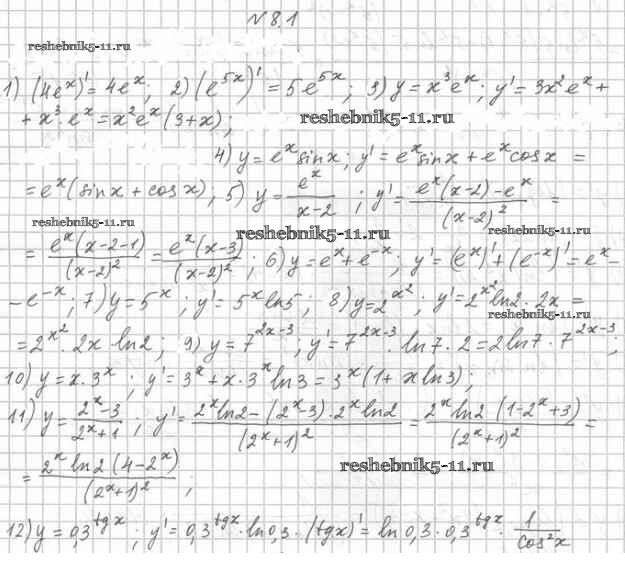 № 8.1
reshebnik5-11.ru
1) (4eˣ)' = 4eˣ; 2) (e^{5x})' = 5e^{5x}; 3) y = x³eˣ; y' = 3x²eˣ +
+ x³·eˣ = x²eˣ(3+x);
reshebnik5-11.ru
4) y = eˣ sin x; y' = eˣ sin x + eˣ cos x =
= eˣ(sin x + cos x); 5) y = eˣ/(x-2); y' = (eˣ(x-2) - eˣ)/(x-2)² =
reshebnik5-11.ru
reshebnik5-11.ru
reshebnik5-11.ru
= eˣ(x-2-1)/(x-2)² = eˣ(x-3)/(x-2)²; 6) y = eˣ + e^{-x}; y' = (eˣ)' + (e^{-x})' = eˣ -
- e^{-x}; 7) y = 5ˣ; y' = 5ˣ ln5; 8) y = 2^{x²}; y' = 2^{x²} ln2 · 2x =
reshebnik5-11.ru
= 2^{x²} · 2x · ln2; 9) y = 7^{2x-3}; y' = 7^{2x-3} · ln7 · 2 = 2ln7 · 7^{2x-3};
10) y = x·3ˣ; y' = 3ˣ + x·3ˣ ln3 = 3ˣ(1 + x ln3);
11) y = (2ˣ-3)/(2ˣ+1); y' = (2ˣ ln2 - (2ˣ-3)·2ˣ ln2)/(2ˣ+1)² = 2ˣ ln2 (1-2ˣ+3)/(2ˣ+1)² =
= 2ˣ ln2 (4-2ˣ)/(2ˣ+1)²;
reshebnik5-11.ru
12) y = 0,3^{tgx}; y' = 0,3^{tgx} · ln0,3 · (tgx)' = ln0,3 · 0,3^{tgx} · 1/cos²x